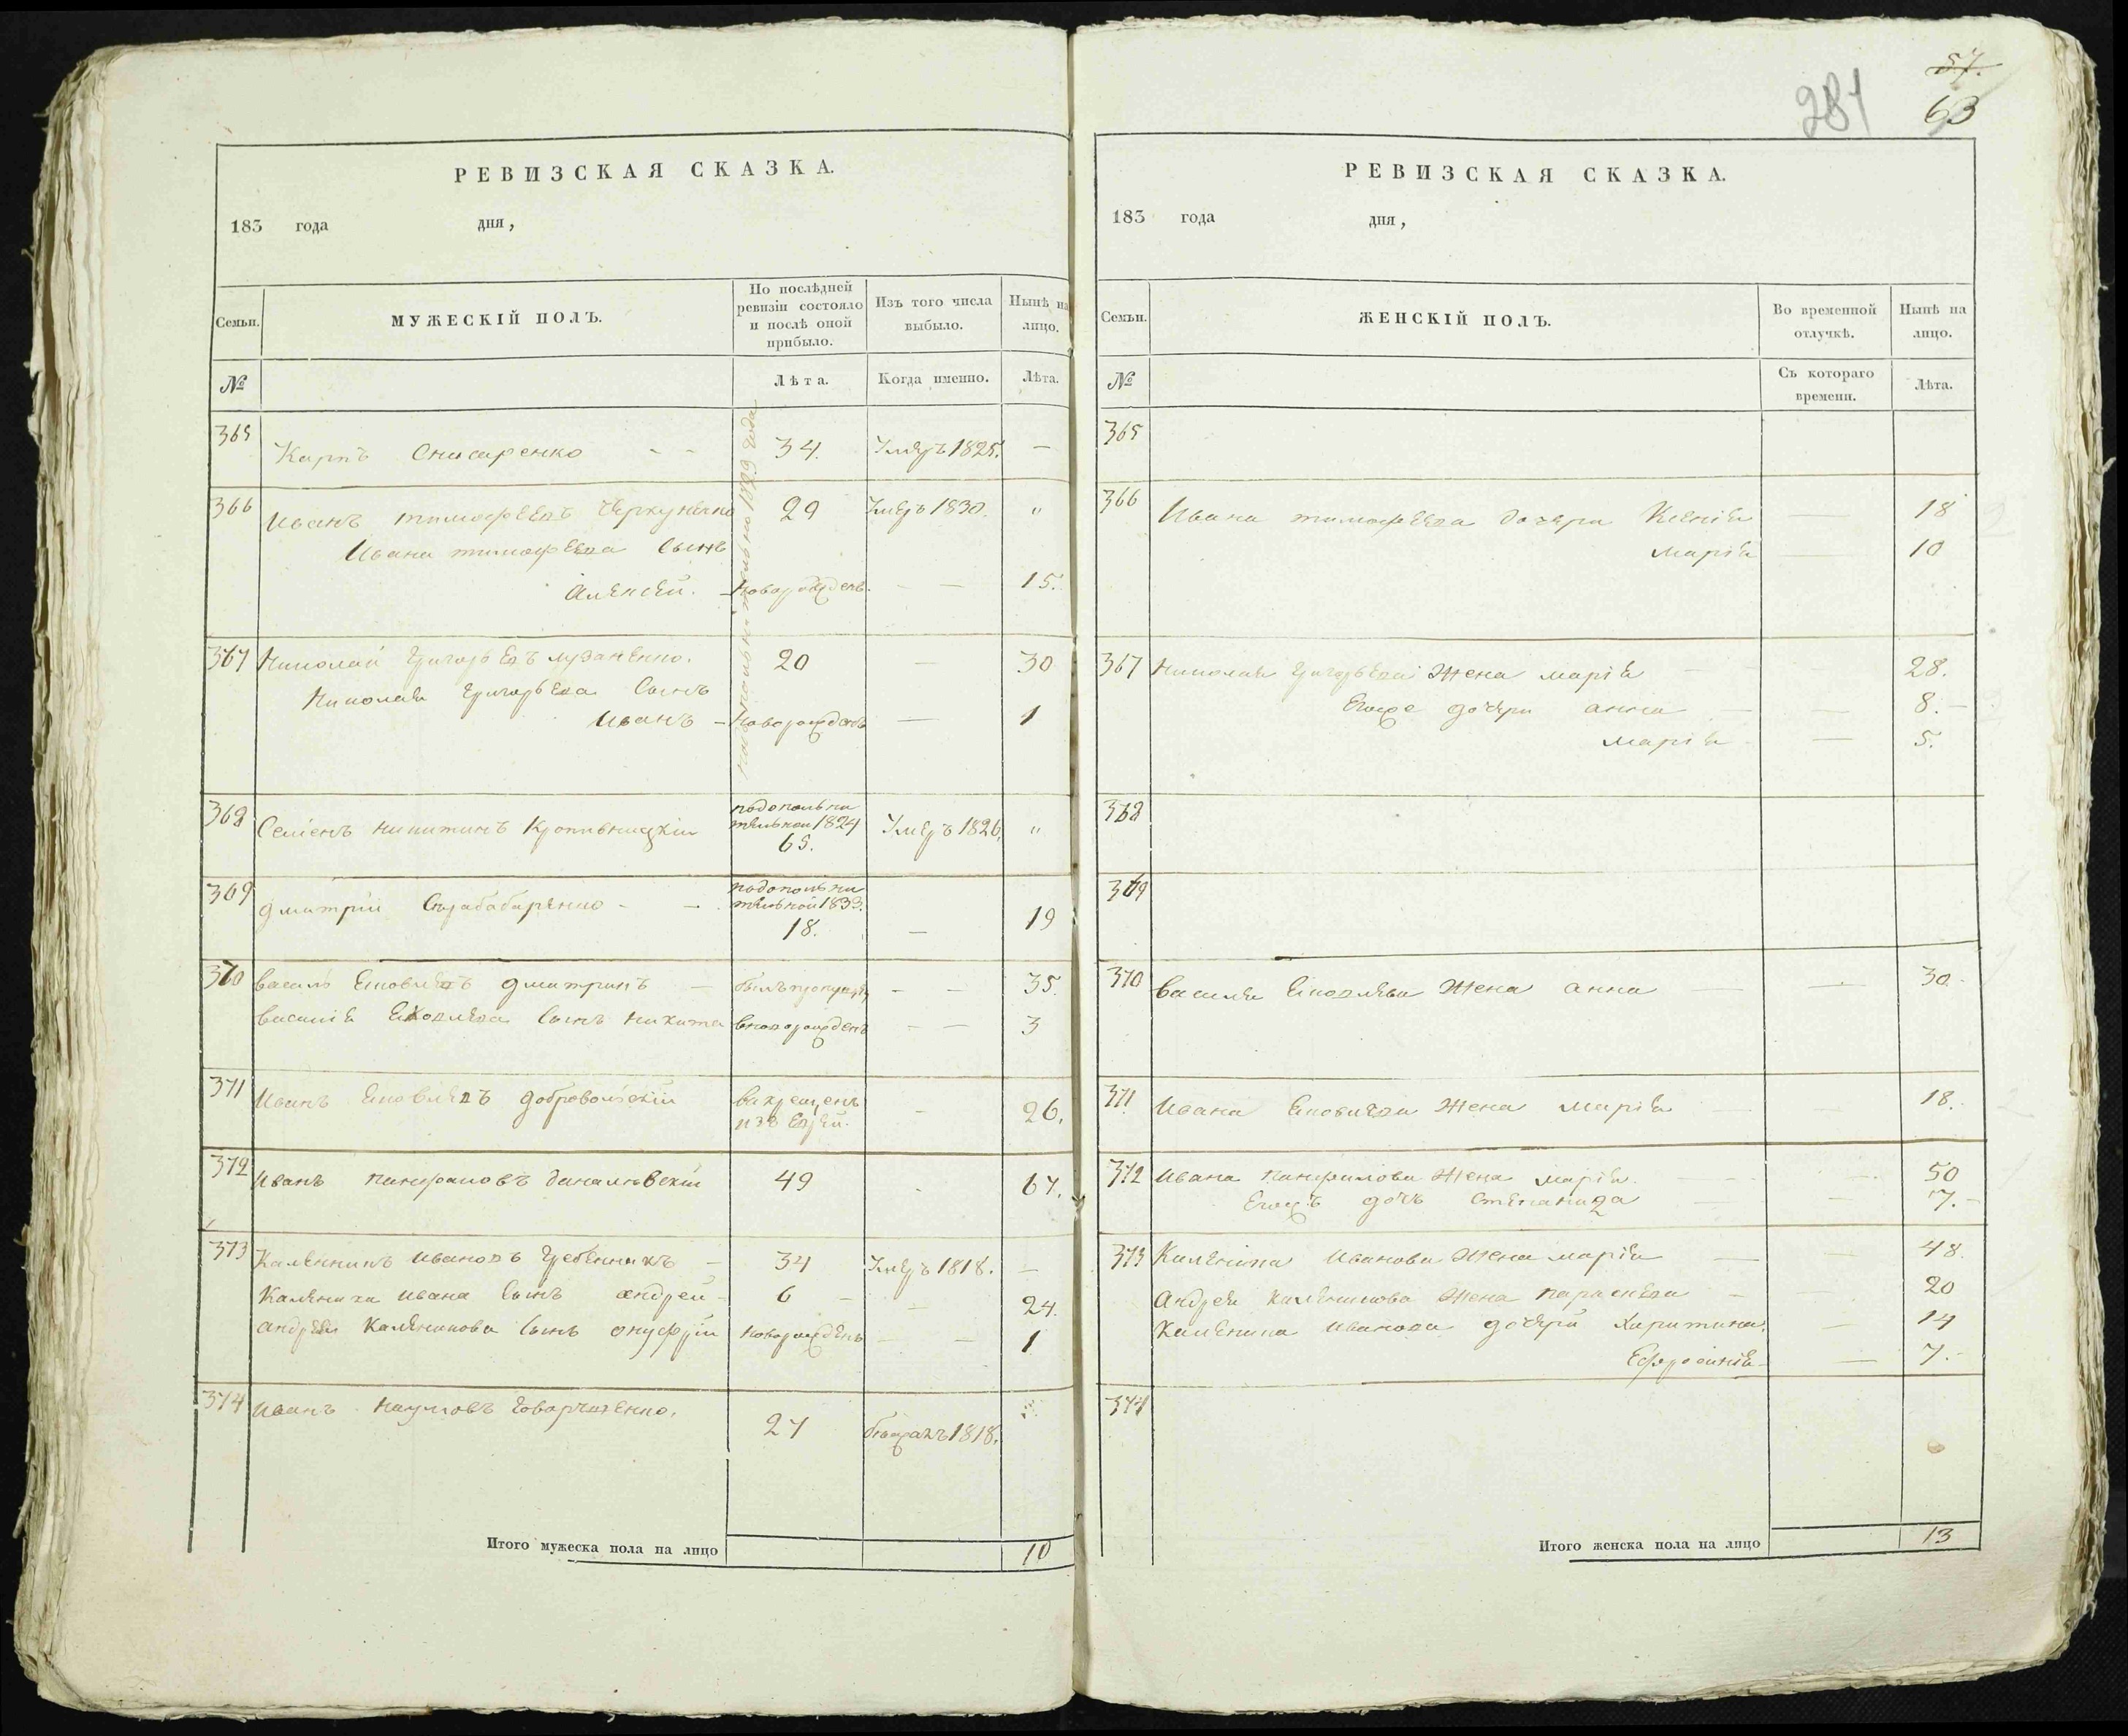 57.
281
63
РЕВИЗСКАЯ СКАЗКА.
183 года дня,
Семьи.
МУЖЕСКІЙ ПОЛЪ.
По послѣдней ревизіи состояло и послѣ оной прибыло.
Изъ того числа выбыло.
Нынѣ на лицо.
№
Лѣта.
Когда именно.
Лѣта.
365 Карпъ Снисаренко 34. Умеръ 1825. —
366 Иванъ тимофеевъ 29 Умеръ 1830. "
Ивана тимофеева Сынъ
Алексей. — Новорожденъ. — — 15.
367 Николай Григорьевъ Лузаненко. 20 — 30
Николая Григорьева Сынъ
Иванъ — Новорожденъ — 1
368 Семенъ никитинъ Кропивницкій подополни
тельной 1824 Умеръ 1826. "
65.
369 дмитрій подополни
тельной 1833. 19
18. —
370 василь Яковлевъ дмитринъ — былъ пропущен — — 35.
василія Яковлева Сынъ никита вноворожденъ — — 3
371 Иванъ Яковлевъ добровольскій выкрещенъ — 26.
изъ Еврей.
372 Иванъ панфиловъ данилевскій 49 67.
373 Каленникъ Ивановъ Гребенникъ — 34 Умеръ 1818. —
Каленика Ивана Сынъ андрей — 6 — — 24.
андрея Каленикова Сынъ онуфрій новорожденъ — — 1
374 Иванъ наумовъ 27 1818.
Итого мужеска пола на лицо 10
РЕВИЗСКАЯ СКАЗКА.
183 года дня,
Семьи.
ЖЕНСКІЙ ПОЛЪ.
Во временной отлучкѣ.
Нынѣ на лицо.
№
Съ котораго времени.
Лѣта.
365
366 Ивана тимофеева дочери Ксенія — 18
марія — 10
367 николая Григорьева Жена марія — 28.
Егоже дочери анна — — 8. —
марія — 5.
368
369
370 василя Яковлева Жена анна — — 30.
371. Ивана Яковлева Жена марія — — 18.
372 Ивана панфилова Жена марія. — 50
Егожъ дочь Степанида — 7. —
373 Каленика Иванова Жена марія — — 48.
андрея Каленикова Жена параскева — 20
Каленика Иванова дочери Харитина. — 14
Ефросинія — — 7. —
374
Итого женска пола на лицо 13